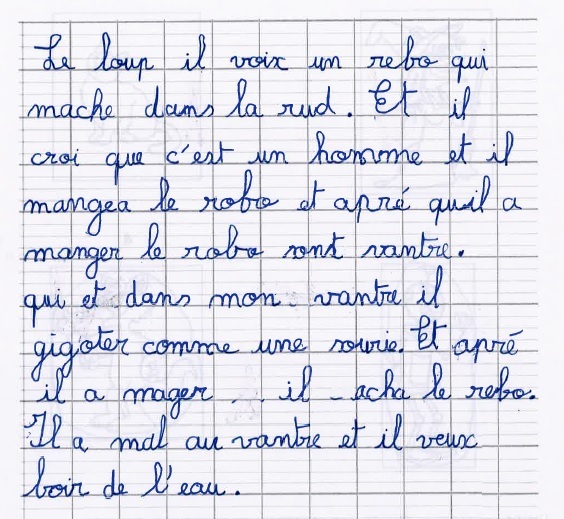 Le loup il voix un rebo qui
mache dans la rud. Et il
croi que c'est un homme et il
mangea le robo et apré quil a
manger le robo sont vantre.
qui et dans mon vantre il
gigoter comme une sourie. Et apré
il a mager il acha le rebo.
Il a mal au vantre et il veux
boir de l'eau.